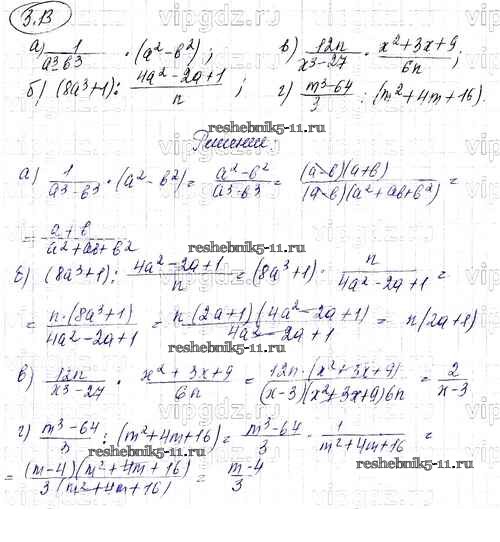 3.В
а) 1/(a³-b³) · (a²-b²); в) 12n/(x³-27) · (x²+3x+9)/6n;
б) (8a³+1) : (4a²-2a+1)/n; г) (m³-64)/3 : (m²+4m+16).
reshebnik5-11.ru
Решение.
а) 1/(a³-b³) · (a²-b²) = (a²-b²)/(a³-b³) = (a-b)(a+b)/((a-b)(a²+ab+b²)) =
= (a+b)/(a²+ab+b²)
reshebnik5-11.ru
б) (8a³+1) : (4a²-2a+1)/n = (8a³+1) · n/(4a²-2a+1) =
= n·(8a³+1)/(4a²-2a+1) = n(2a+1)(4a²-2a+1)/(4a²-2a+1) = n(2a+1)
reshebnik5-11.ru
в) 12n/(x³-27) · (x²+3x+9)/6n = 12n·(x²+3x+9)/((x-3)(x²+3x+9)6n) = 2/(x-3)
г) (m³-64)/3 : (m²+4m+16) = (m³-64)/3 · 1/(m²+4m+16) =
= (m-4)(m²+4m+16)/(3(m²+4m+16)) = (m-4)/3
reshebnik5-11.ru
vipgdz.ru